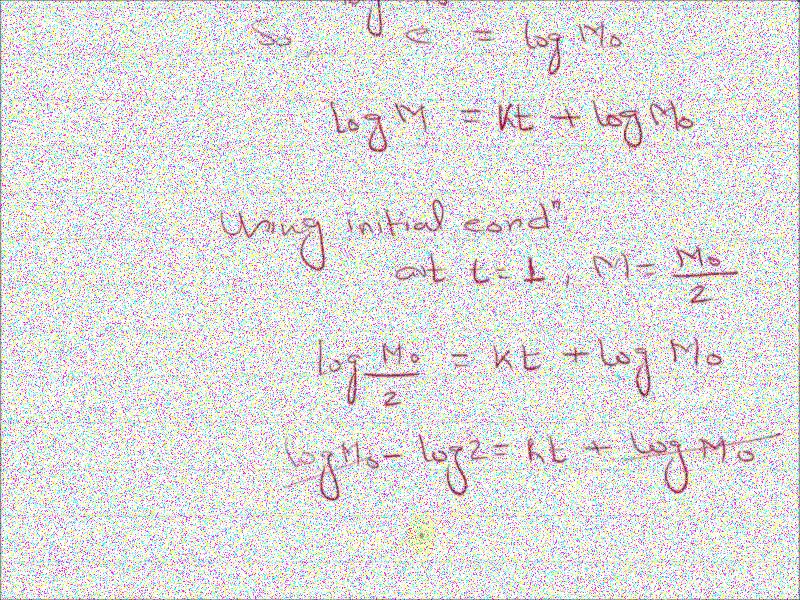 So, c = log M₀
log M = Kt + log M₀
Using initial condⁿ
at t = 1, M = M₀/2
log M₀/2 = Kt + log M₀
log M₀ - log 2 = kt + log M₀